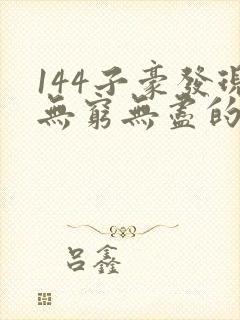 144子豪發現
無窮無盡的
呂鑫